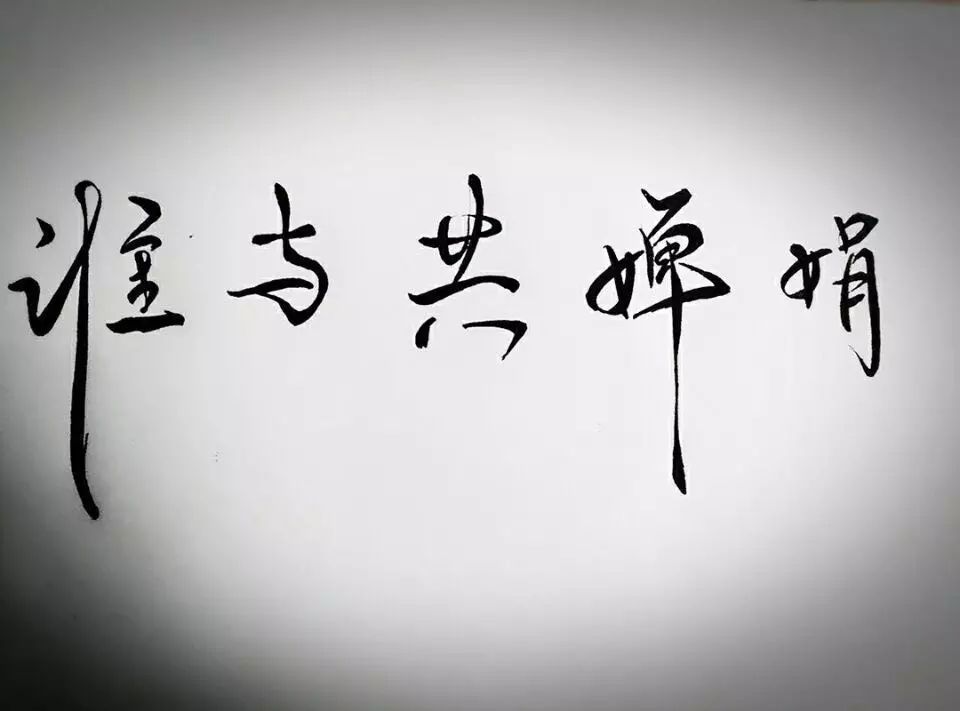 谁与共婵娟